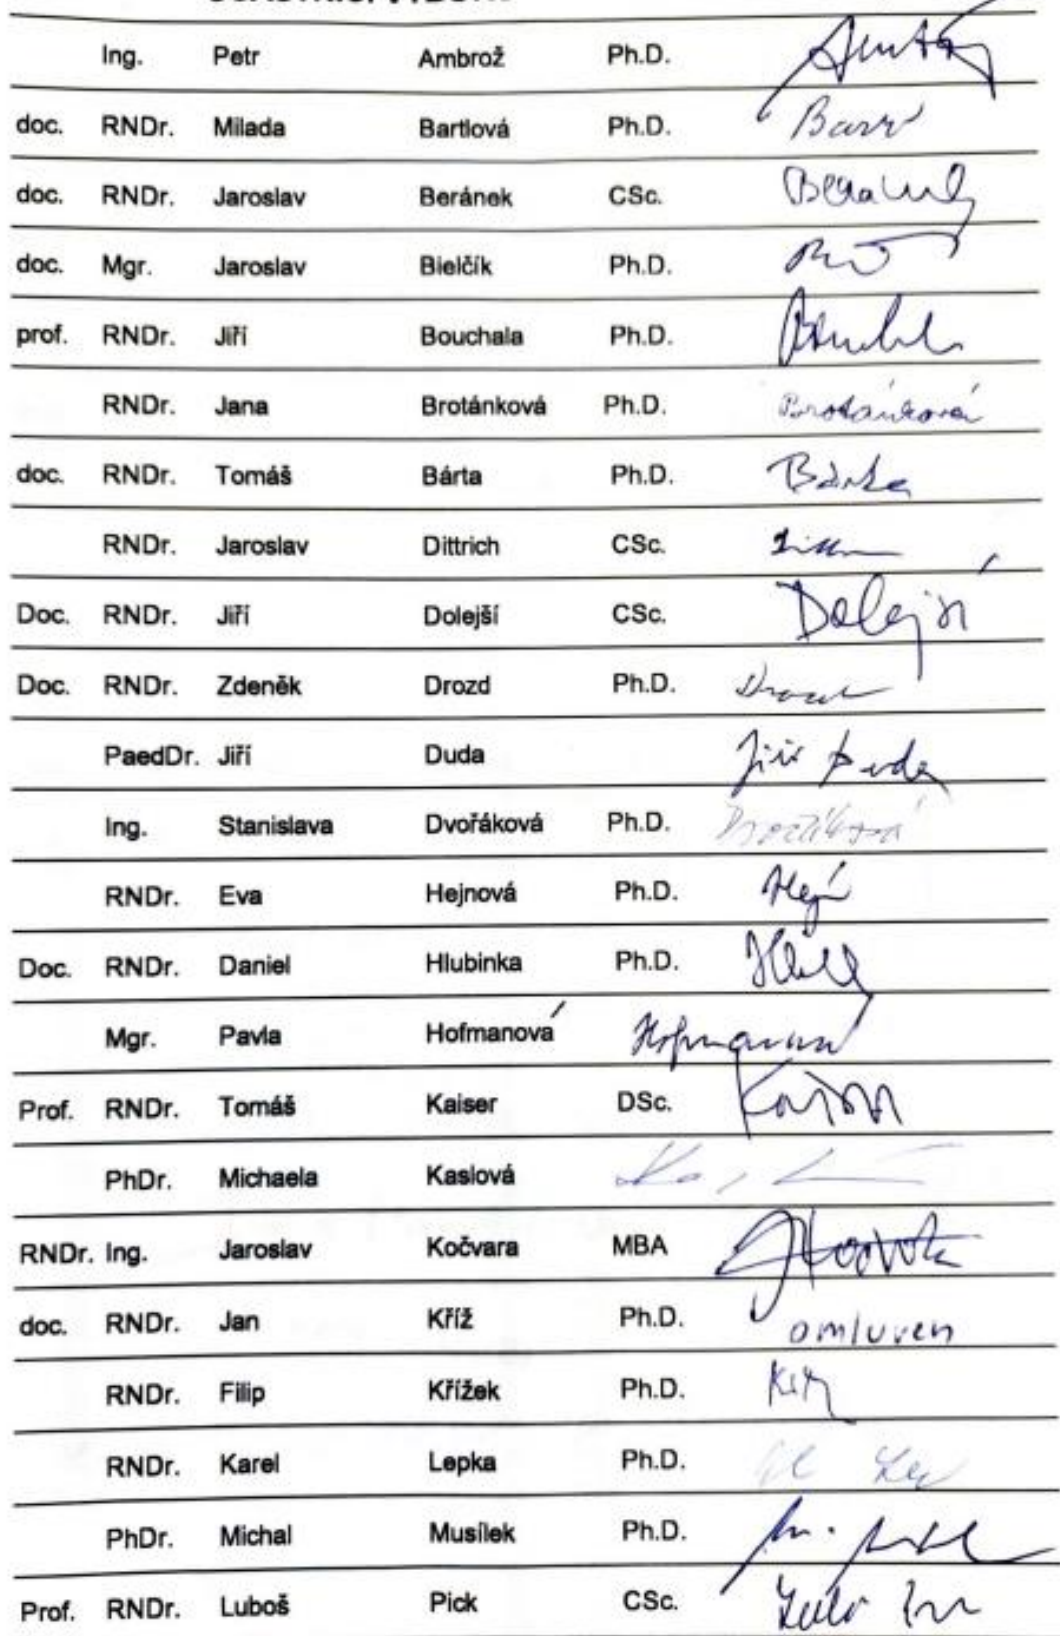 Ing. Petr Ambrož Ph.D.
doc. RNDr. Milada Bartlová Ph.D.
doc. RNDr. Jaroslav Beránek CSc.
doc. Mgr. Jaroslav Bielčík Ph.D.
prof. RNDr. Jiří Bouchala Ph.D.
RNDr. Jana Brotánková Ph.D. Brotánková
doc. RNDr. Tomáš Bárta Ph.D. Bárta
RNDr. Jaroslav Dittrich CSc.
Doc. RNDr. Jiří Dolejší CSc. Dolejší
Doc. RNDr. Zdeněk Drozd Ph.D. Drozd
PaedDr. Jiří Duda Jiří Duda
Ing. Stanislava Dvořáková Ph.D. Dvořáková
RNDr. Eva Hejnová Ph.D.
Doc. RNDr. Daniel Hlubinka Ph.D.
Mgr. Pavla Hofmanová Hofmanová
Prof. RNDr. Tomáš Kaiser DSc. Kaiser
PhDr. Michaela Kaslová
RNDr. Ing. Jaroslav Kočvara MBA
doc. RNDr. Jan Kříž Ph.D. omluven
RNDr. Filip Křížek Ph.D.
RNDr. Karel Lepka Ph.D.
PhDr. Michal Musílek Ph.D.
Prof. RNDr. Luboš Pick CSc.